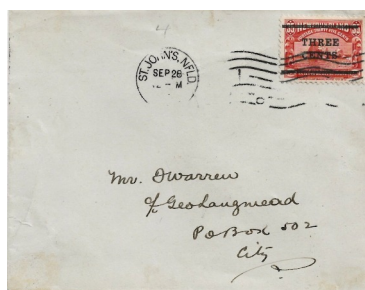 ST. JOHN'S. NFLD.
SEP 26
M
THREE
CENTS
Mr. D Warren
c/o Geo Langmead
PO Box 502
City